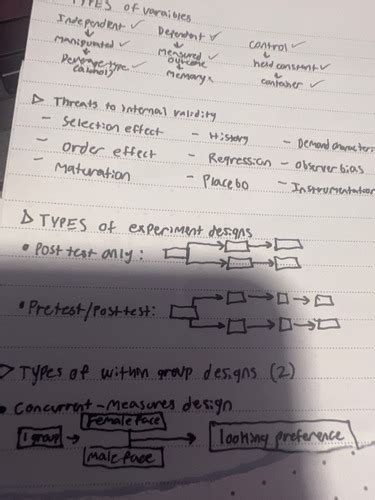 TYPES of varaibles
Independent ✓ Dependent ✓ control ✓
↓ ↓ ↓
Manipulated ✓ Measured ✓ held constant ✓
outcome
↓ ↓ ↓
Memory x container ✓
▷ Threats to internal validity
- Selection effect - History - Demand characteri
- Order effect - Regression - observer bias
- Maturation - Placebo - Instrumentation
▷ TYPES of experiment designs
• Post test only:
• Pretest/Posttest:
▷ Types of within group designs (2)
• Concurrent-Measures design
Female face
1 group → looking preference
Male face